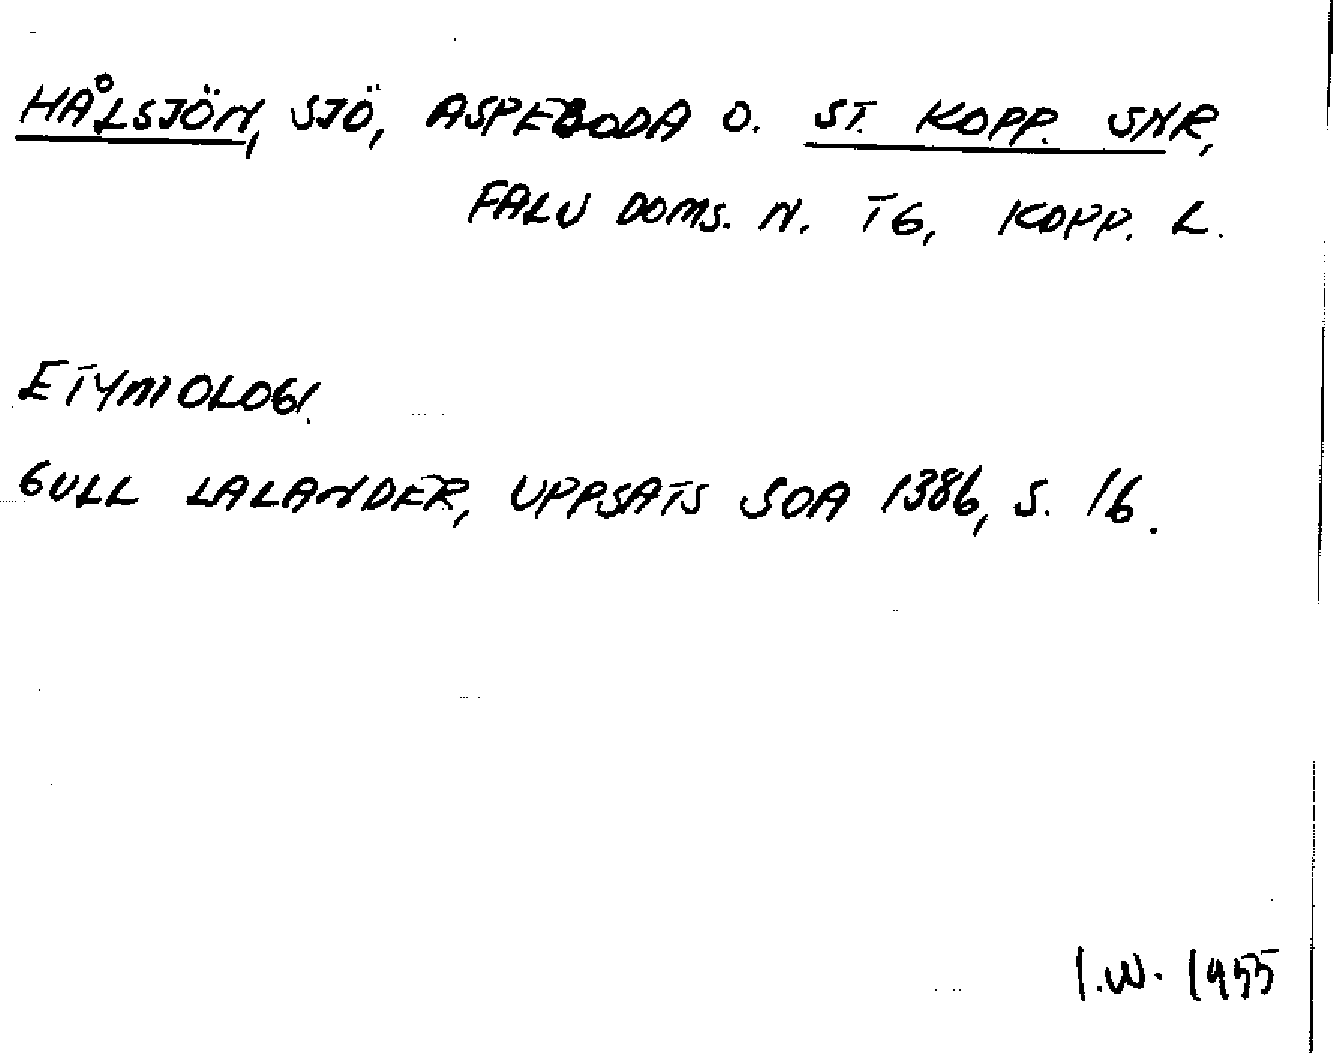 HÅLSJÖN, SJÖ, ASPEBODA O. ST. KOPP. SNR,
FALU DOMS. N. TG, KOPP. L.
ETYMOLOGI.
GULL LALANDER, UPPSATS SOA 1386, S. 16.
I.W. 1955